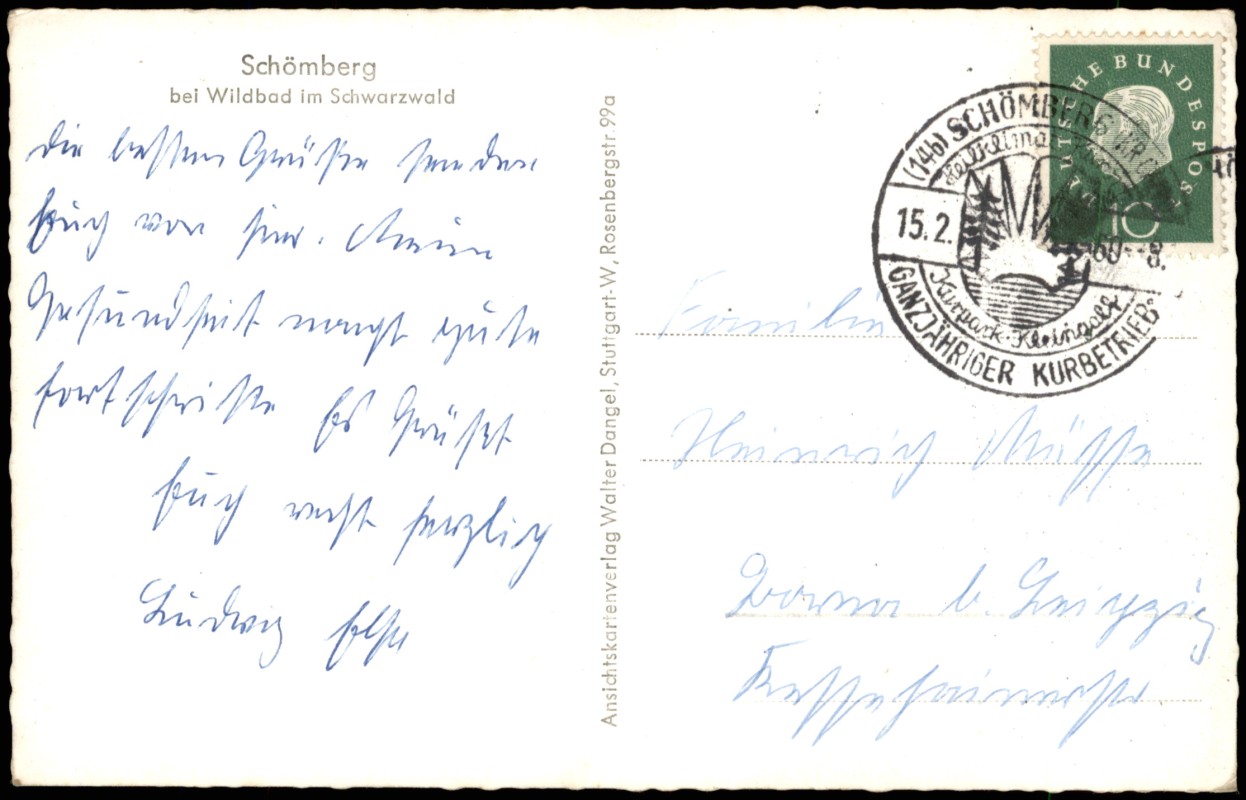 Schömberg
bei Wildbad im Schwarzwald
Die besten Grüße senden
Euch von hier. Meine
Gesundheit macht gute
Fortschritte Es Grüßt
Euch recht herzlich
Ludwig Else
Ansichtskartenverlag Walter Dangel, Stuttgart-W, Rosenbergstr. 99a
DEUTSCHE BUNDESPOST
10
(14b) SCHÖMBERG
15.2.60--8.
Kurpark-Kleingolf
GANZJÄHRIGER KURBETRIEB
Familie
Heinrich
Borna b. Leipzig